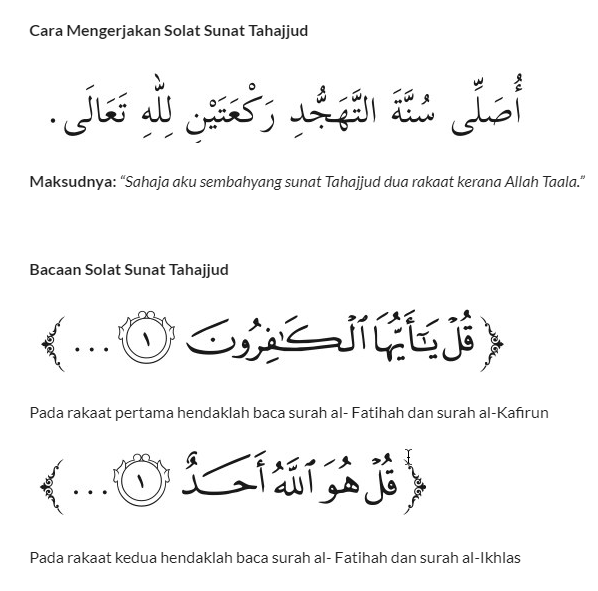 Cara Mengerjakan Solat Sunat Tahajjud
أُصَلِّى سُنَّةَ التَّهَجُّدِ رَكْعَتَيْنِ لِلّٰهِ تَعَالَى .
Maksudnya: “Sahaja aku sembahyang sunat Tahajjud dua rakaat kerana Allah Taala.”
Bacaan Solat Sunat Tahajjud
﴿ قُلْ يَـٰٓأَيُّهَا ٱلْكَـٰفِرُونَ ١ ... ﴾
Pada rakaat pertama hendaklah baca surah al- Fatihah dan surah al-Kafirun
﴿ قُلْ هُوَ ٱللَّهُ أَحَدٌ ١ ... ﴾
Pada rakaat kedua hendaklah baca surah al- Fatihah dan surah al-Ikhlas